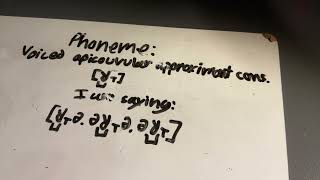 Phoneme:
Voiced apicouvular approximant cons.
[ʁ̺˕]
I am saying:
[ʁ̺˕ə. əʁ̺˕ə. əʁ̺˕.]